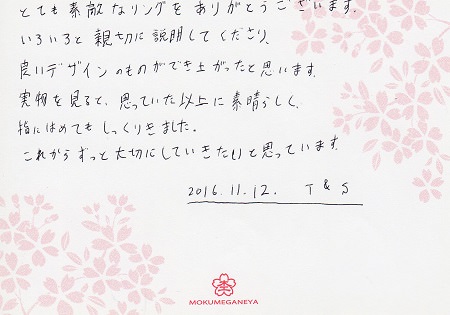 とても素敵なリングをありがとうございます。
いろいろと親切に説明してくださり、
良いデザインのものができ上がったと思います。
実物を見ると、思っていた以上に素晴らしく、
指にはめてもしっくりきました。
これからずっと大切にしていきたいと思っています。
2016.11.12. T & S
MOKUMEGANEYA